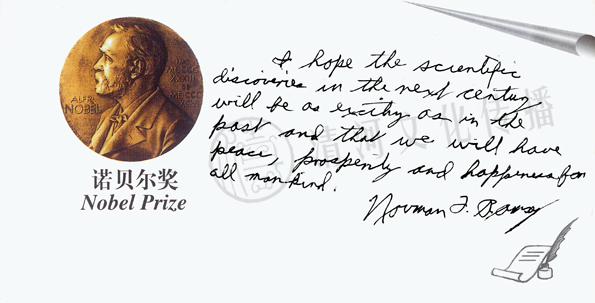 ALFR.
NOBEL
诺贝尔奖
Nobel Prize
I hope the scientific
discoveries in the next century
will be as excithg as in the
past and that we will have
peace, prosperity and happiness for
all mankind.
Norman F. Ramsey
清河文化传播